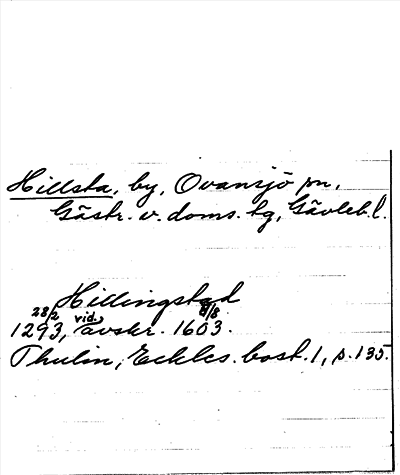 Hillsta, by, Ovansjö sn,
Gästr. v. doms. tg, Gävleb. l.
Hillingstad
28/2 8/8
1293, vid. avskr. 1603.
Thulin, Eckles. bost. 1, s. 135.